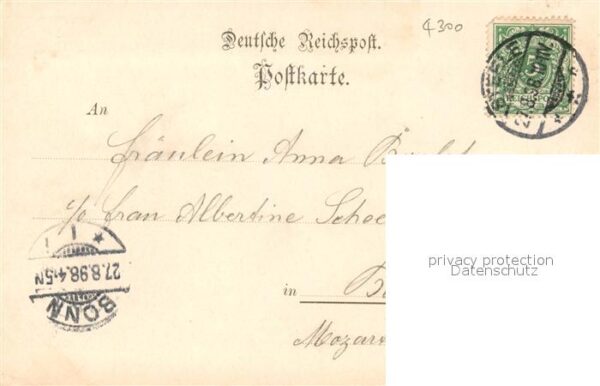 4300
Deutsche Reichspost.
Postkarte.
An
Fräulein Anna
c/o Frau Albertine
privacy protection
Datenschutz
27.8.98. 4-5N
BONN
in
Mozar